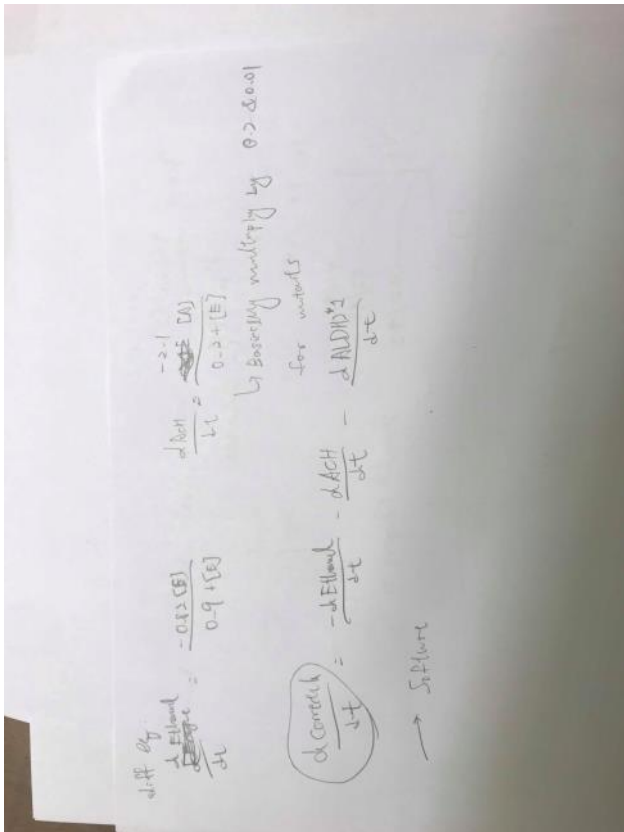 diff eq.
d Ethanol / dt = -0.82 [E] / 0.9 + [E]
dAcH / dt = -2.1 [A] / 0.2 + [E]
↳ Basically multiply by 0.2 & 0.01
for mutants
d / dt = -d Ethanol / dt - dAcH / dt - dALDH)*1 / dt
→ Software